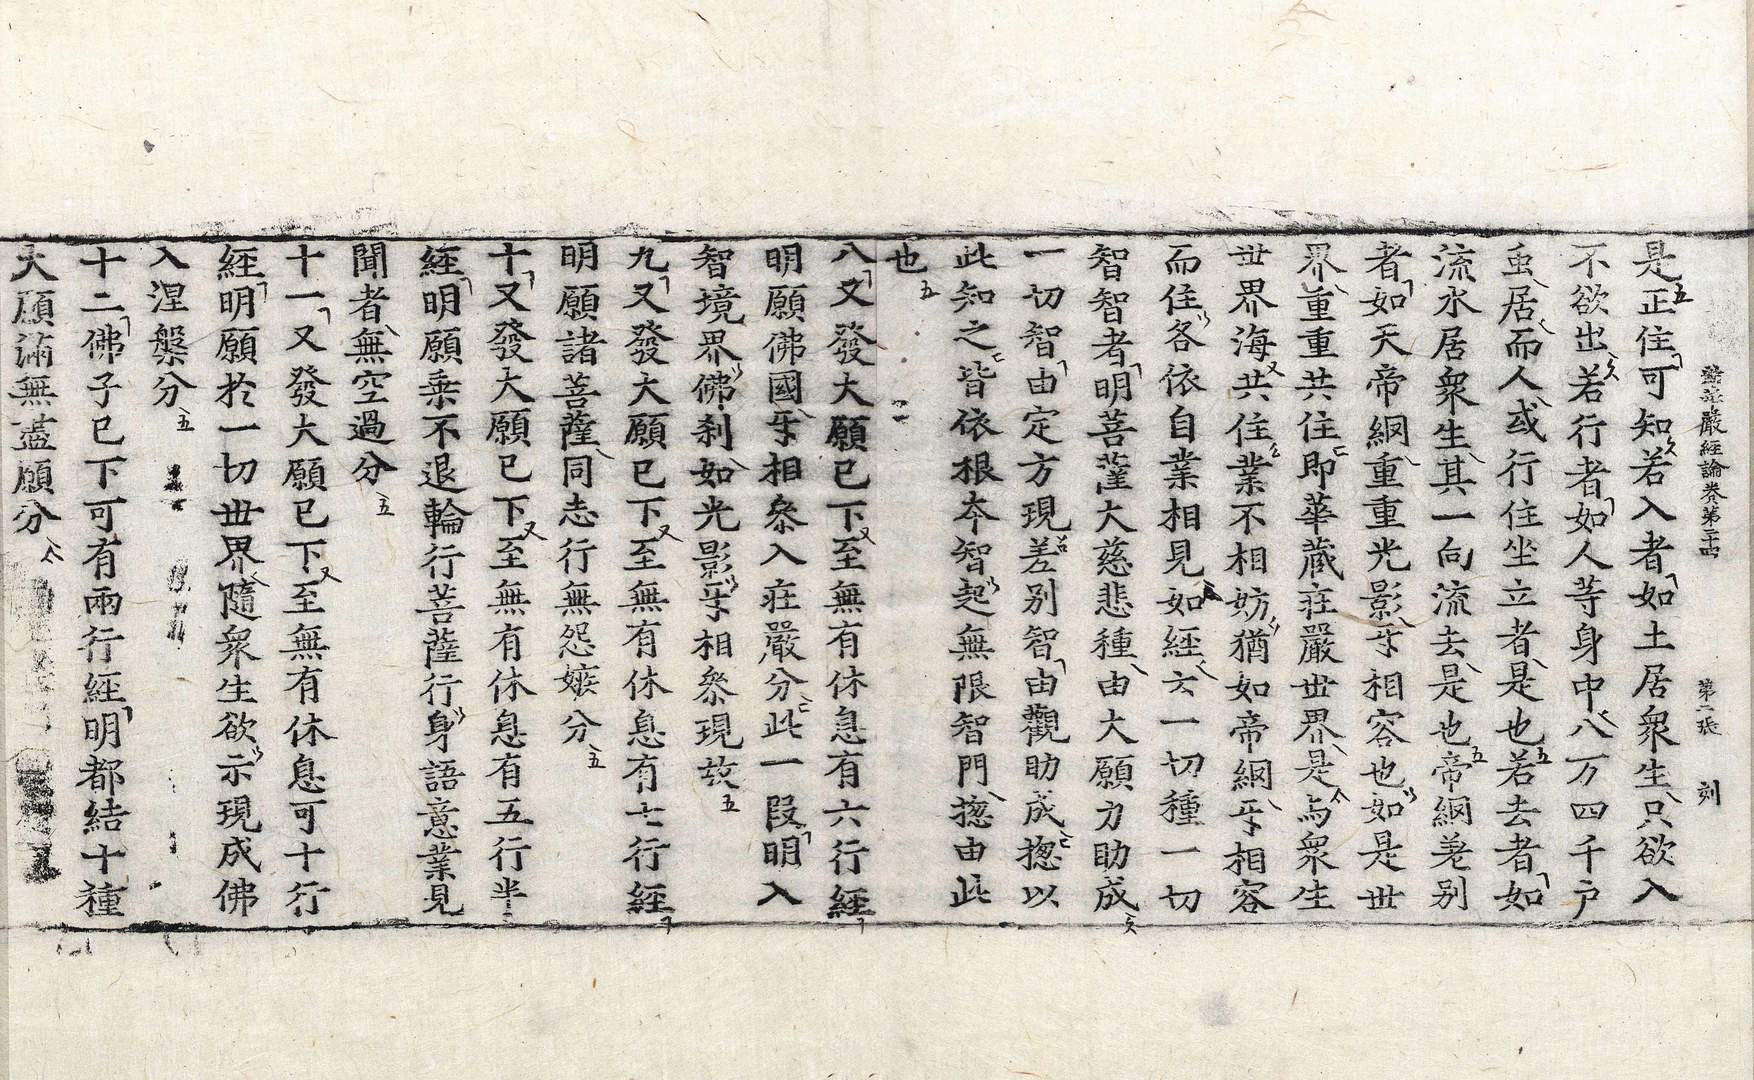 花嚴經論卷第二十四 第二張 刻
是正住可知若入者如土居衆生只欲入
不欲出若行者如人等身中八万四千戶
虫居而人或行住坐立者是也若去者如
流水居衆生其一向流去是也帝網差别
者如天帝網重重光影㸦相容也如是世
界重重共住即華藏莊嚴世界是与衆生
世界海共住業不相妨猶如帝網㸦相容
而住各依自業相見如經云一切種一切
智智者明菩薩大慈悲種由大願力助成
一切智由定方現差别智由觀助成揔以
此知之皆依根本智起無限智門揔由此
也
八又發大願已下至無有休息有六行經
明願佛國㸦相叅入莊嚴分此一段明入
智境界佛刹如光影㸦相叅現故
九又發大願已下至無有休息有七行經
明願諸菩薩同志行無怨嫉分
十又發大願已下至無有休息有五行半
經明願乗不退輪行菩薩行身語意業見
聞者無空過分
十一又發大願已下至無有休息可十行
經明願於一切世界隨衆生欲示現成佛
入涅槃分
十二佛子已下可有兩行經明都結十種
大願滿無盡願分